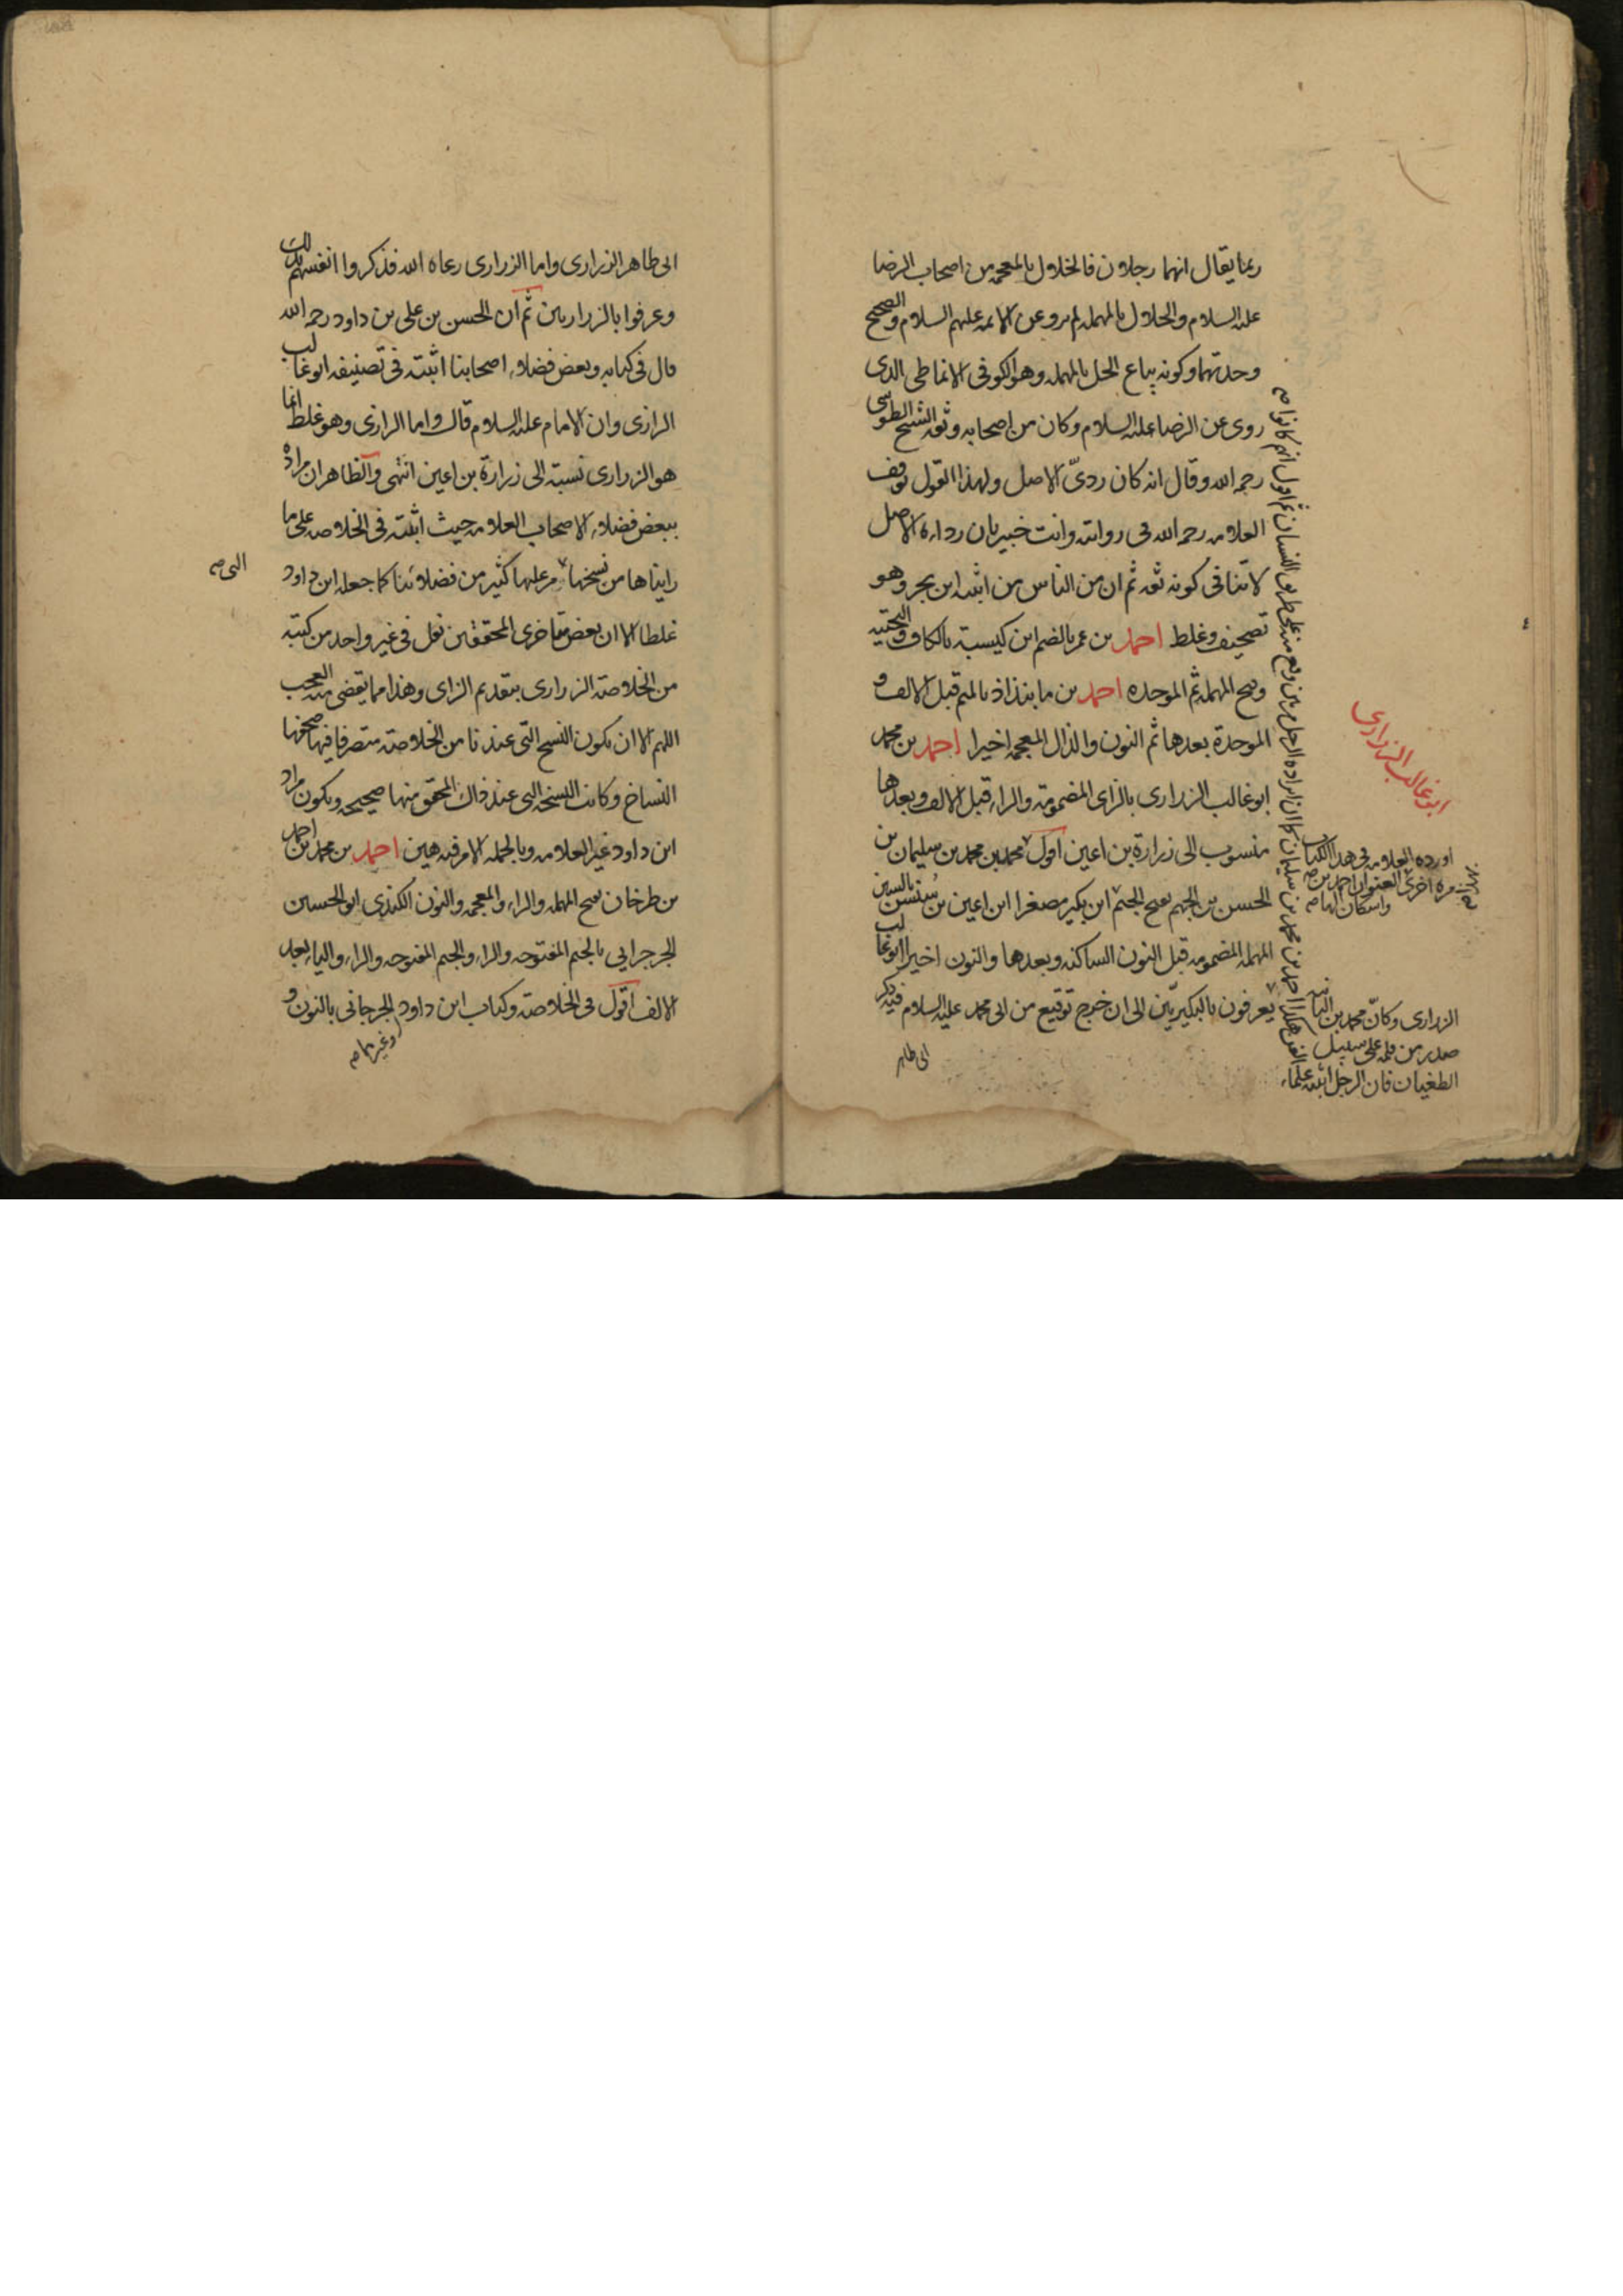 ربما يقال انهما رجلان فالخلال بالمعجمه من اصحاب الرضا
عليه السلام والحلال بالمهمله لم يرو عن الائمه عليهم السلام والصحيح
وحدتهما وكونه بياع الحل بالمهمله وهو الكوفى الانماطى الذى
روى عن الرضا عليه السلام وكان من اصحابه وثقه الشيخ الطوسى
رحمه الله وقال انه كان ردىّ الاصل ولهذا القول توقف
العلامه رحمه الله فى روايته وانت خبير بان رداءة الاصل
لا تنافى كونه ثقه ثم ان من الناس من اثبته ابن بحر وهو
تصحيف وغلط احمد بن عمر بالضم ابن كيسبة بالكاف والتحتيه
وفتح المهمله ثم الموحده احمد بن مابنذاذ بالميم قبل الالف و
الموحدة بعدها ثم النون والذال المعجمه اخيرا احمد بن محمد
ابوغالب الزرارى بالزاى المضمومة والراء قبل الالف وبعدها
منسوب الى زرارة بن اعين اقول محمد بن محمد بن سليمان بن
الحسن بن الجهم بفتح الجيم ابن بكير مصغرا ابن اعين بن سُنسن بالسين
المهمله المضمومه قبل النون الساكنه وبعدها والنون اخيرا ابوغالب
يعرفون بالبكيريّين الى ان خرج توقيع من ابى محمد عليه السلام فيه ذكر
ابى طاهر
ابوغالب الزرارى
اورده العلامه فى هذا الكتاب
مرة اخرى العنوان احمد بن
واسكان الهاء صح
الزرارى وكانّ محمد بن
صدر من قلمه على سبيل
الطغيان فان الرجل اثبته علماء
ابى طاهر الزرارى واما الزرارى رعاه الله فذكروا انفسهم بذلك
وعرفوا بالزراريين ثم ان الحسن بن على بن داود رحمه الله
قال فى كتابه وبعض فضلاء اصحابنا اثبته فى تصنيفه ابوغالب
الرازى وان الامام عليه السلام قال واما الرازى وهو غلط انما
هو الزرارى نسبة الى زرارة بن اعين انتهى والظاهر ان مراده
ببعض فضلاء الاصحاب العلامه حيث اثبته فى الخلاصه على ما
رايناها من نسخها مر عليها كثير من فضلائنا كما جعله ابن داود
التى صح
غلطا الا ان بعض متاخرى المحققين نقل فى غير واحد من كتبه
من الخلاصة الزرارى بتقديم الزاى وهذا مما يقضى منه العجب
اللهم الا ان تكون النسخ التى عندنا من الخلاصة متصرفا فيها صحفها
النساخ وكانت النسخه التى عند ذاك المحقق منها صحيحه ويكون مراد
ابن داود غير العلامه وبالجمله الامر فيه هين احمد بن محمد بن احمد
بن طرخان بفتح المهمله والراء والمعجمه والنون الكندى ابو الحسين
الجرجرايى بالجيم المفتوحه والراء والجيم المفتوحه والراء والياء بعد
الالف اقول فى الخلاصة وكتاب ابن داود الجرجانى بالنون و
وغيرها صح